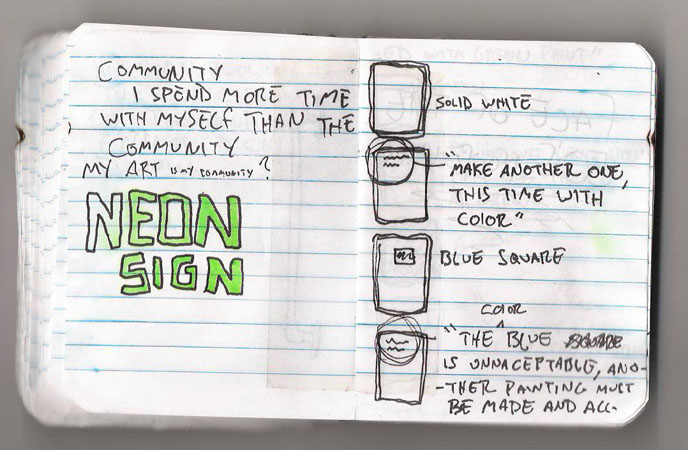 COMMUNITY
I SPEND MORE TIME
WITH MYSELF THAN THE
COMMUNITY
MY ART IS MY COMMUNITY?
NEON
SIGN
SOLID WHITE
"MAKE ANOTHER ONE,
THIS TIME WITH
COLOR"
BLUE SQUARE
COLOR
"THE BLUE SQUARE
IS UNNACEPTABLE, ANO-
-THER PAINTING MUST
BE MADE AND ALL-